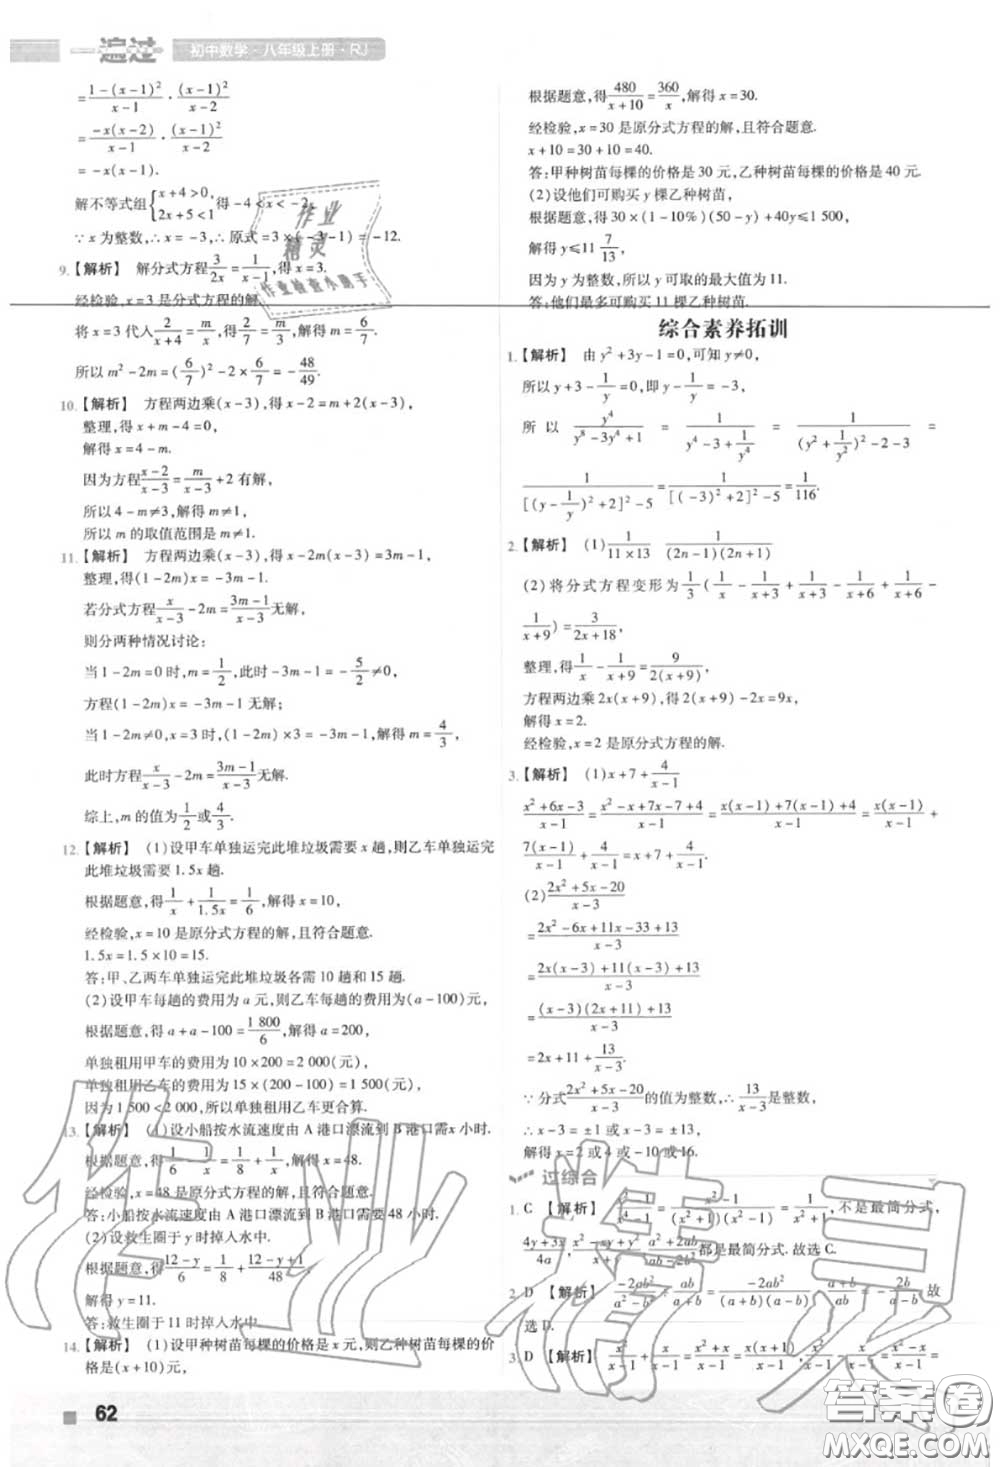 一遍过 初中数学·八年级上册·RJ
=\frac{1-(x-1)^2}{x-1}·\frac{(x-1)^2}{x-2}
=\frac{-x(x-2)}{x-1}·\frac{(x-1)^2}{x-2}
=-x(x-1).
解不等式组{x+4>0, 2x+5<1 得-4<x<-2,
∵x为整数,∴x=-3,∴原式=3×(-3-1)=-12.
9.【解析】 解分式方程\frac{3}{2x}=\frac{1}{x-1},得x=3.
经检验,x=3是分式方程的解.
将x=3代入\frac{2}{x+4}=\frac{m}{x},得\frac{2}{7}=\frac{m}{3},得m=\frac{6}{7}.
所以m²-2m=(\frac{6}{7})²-2×\frac{6}{7}=-\frac{48}{49}.
10.【解析】 方程两边乘(x-3),得x-2=m+2(x-3),
整理,得x+m-4=0,
解得x=4-m.
因为方程\frac{x-2}{x-3}=\frac{m}{x-3}+2有解,
所以4-m≠3,解得m≠1.
所以m的取值范围是m≠1.
11.【解析】 方程两边乘(x-3),得x-2m(x-3)=3m-1,
整理,得(1-2m)x=-3m-1.
若分式方程\frac{x}{x-3}-2m=\frac{3m-1}{x-3}无解,
则分两种情况讨论:
当1-2m=0时,m=\frac{1}{2},此时-3m-1=-\frac{5}{2}≠0,
方程(1-2m)x=-3m-1无解;
当1-2m≠0,x=3时,(1-2m)×3=-3m-1,解得m=\frac{4}{3},
此时方程\frac{x}{x-3}-2m=\frac{3m-1}{x-3}无解.
综上,m的值为\frac{1}{2}或\frac{4}{3}.
12.【解析】 (1)设甲车单独运完此堆垃圾需要x趟,则乙车单独运完
此堆垃圾需要1.5x趟.
根据题意,得\frac{1}{x}+\frac{1}{1.5x}=\frac{1}{6},解得x=10,
经检验,x=10是原分式方程的解,且符合题意.
1.5x=1.5×10=15.
答:甲、乙两车单独运完此堆垃圾各需10趟和15趟.
(2)设甲车每趟的费用为a元,则乙车每趟的费用为(a-100)元,
根据题意,得a+a-100=\frac{1 800}{6},解得a=200,
单独租用甲车的费用为10×200=2 000(元),
单独租用乙车的费用为15×(200-100)=1 500(元),
因为1 500<2 000,所以单独租用乙车更合算.
13.【解析】 (1)设小船按水流速度由A港口漂流到B港口需x小时.
根据题意,得\frac{1}{6}-\frac{1}{x}=\frac{1}{8}+\frac{1}{x},解得x=48.
经检验,x=48是原分式方程的解,且符合题意.
答:小船按水流速度由A港口漂流到B港口需要48小时.
(2)设救生圈于y时掉入水中.
根据题意,得\frac{12-y}{6}=\frac{1}{8}+\frac{12-y}{48},
解得y=11.
答:救生圈于11时掉入水中.
14.【解析】 (1)设甲种树苗每棵的价格是x元,则乙种树苗每棵的价
格是(x+10)元,
62
根据题意,得\frac{480}{x+10}=\frac{360}{x},解得x=30.
经检验,x=30是原分式方程的解,且符合题意.
x+10=30+10=40.
答:甲种树苗每棵的价格是30元,乙种树苗每棵的价格是40元.
(2)设他们可购买y棵乙种树苗,
根据题意,得30×(1-10%)(50-y)+40y≤1 500,
解得y≤11\frac{7}{13},
因为y为整数,所以y可取的最大值为11.
答:他们最多可购买11棵乙种树苗.
综合素养拓训
1.【解析】 由y²+3y-1=0,可知y≠0,
所以y+3-\frac{1}{y}=0,即y-\frac{1}{y}=-3,
所以\frac{y^4}{y^8-3y^4+1}=\frac{1}{y^4-3+\frac{1}{y^4}}=\frac{1}{(y^2+\frac{1}{y^2})^2-2-3}=
\frac{1}{[(y-\frac{1}{y})^2+2]^2-5}=\frac{1}{[(-3)^2+2]^2-5}=\frac{1}{116}.
2.【解析】 (1)\frac{1}{11×13} \frac{1}{(2n-1)(2n+1)}
(2)将分式方程变形为\frac{1}{3}(\frac{1}{x}-\frac{1}{x+3}+\frac{1}{x+3}-\frac{1}{x+6}+\frac{1}{x+6}-
\frac{1}{x+9})=\frac{3}{2x+18},
整理,得\frac{1}{x}-\frac{1}{x+9}=\frac{9}{2(x+9)},
方程两边乘2x(x+9),得2(x+9)-2x=9x,
解得x=2.
经检验,x=2是原分式方程的解.
3.【解析】 (1)x+7+\frac{4}{x-1}
\frac{x^2+6x-3}{x-1}=\frac{x^2-x+7x-7+4}{x-1}=\frac{x(x-1)+7(x-1)+4}{x-1}=\frac{x(x-1)}{x-1}+
\frac{7(x-1)}{x-1}+\frac{4}{x-1}=x+7+\frac{4}{x-1}.
(2)\frac{2x^2+5x-20}{x-3}
=\frac{2x^2-6x+11x-33+13}{x-3}
=\frac{2x(x-3)+11(x-3)+13}{x-3}
=\frac{(x-3)(2x+11)+13}{x-3}
=2x+11+\frac{13}{x-3}.
∵分式\frac{2x^2+5x-20}{x-3}的值为整数,∴\frac{13}{x-3}是整数,
∴x-3=±1或x-3=±13,
解得x=2或4或-10或16.
过综合
1. C 【解析】
\frac{4y+3x}{4a} 都是最简分式.故选C.
2. D 【解析】
选D.
3. D 【解析】
作业精灵
作业检查小助手
答案圈
MXQE.COM